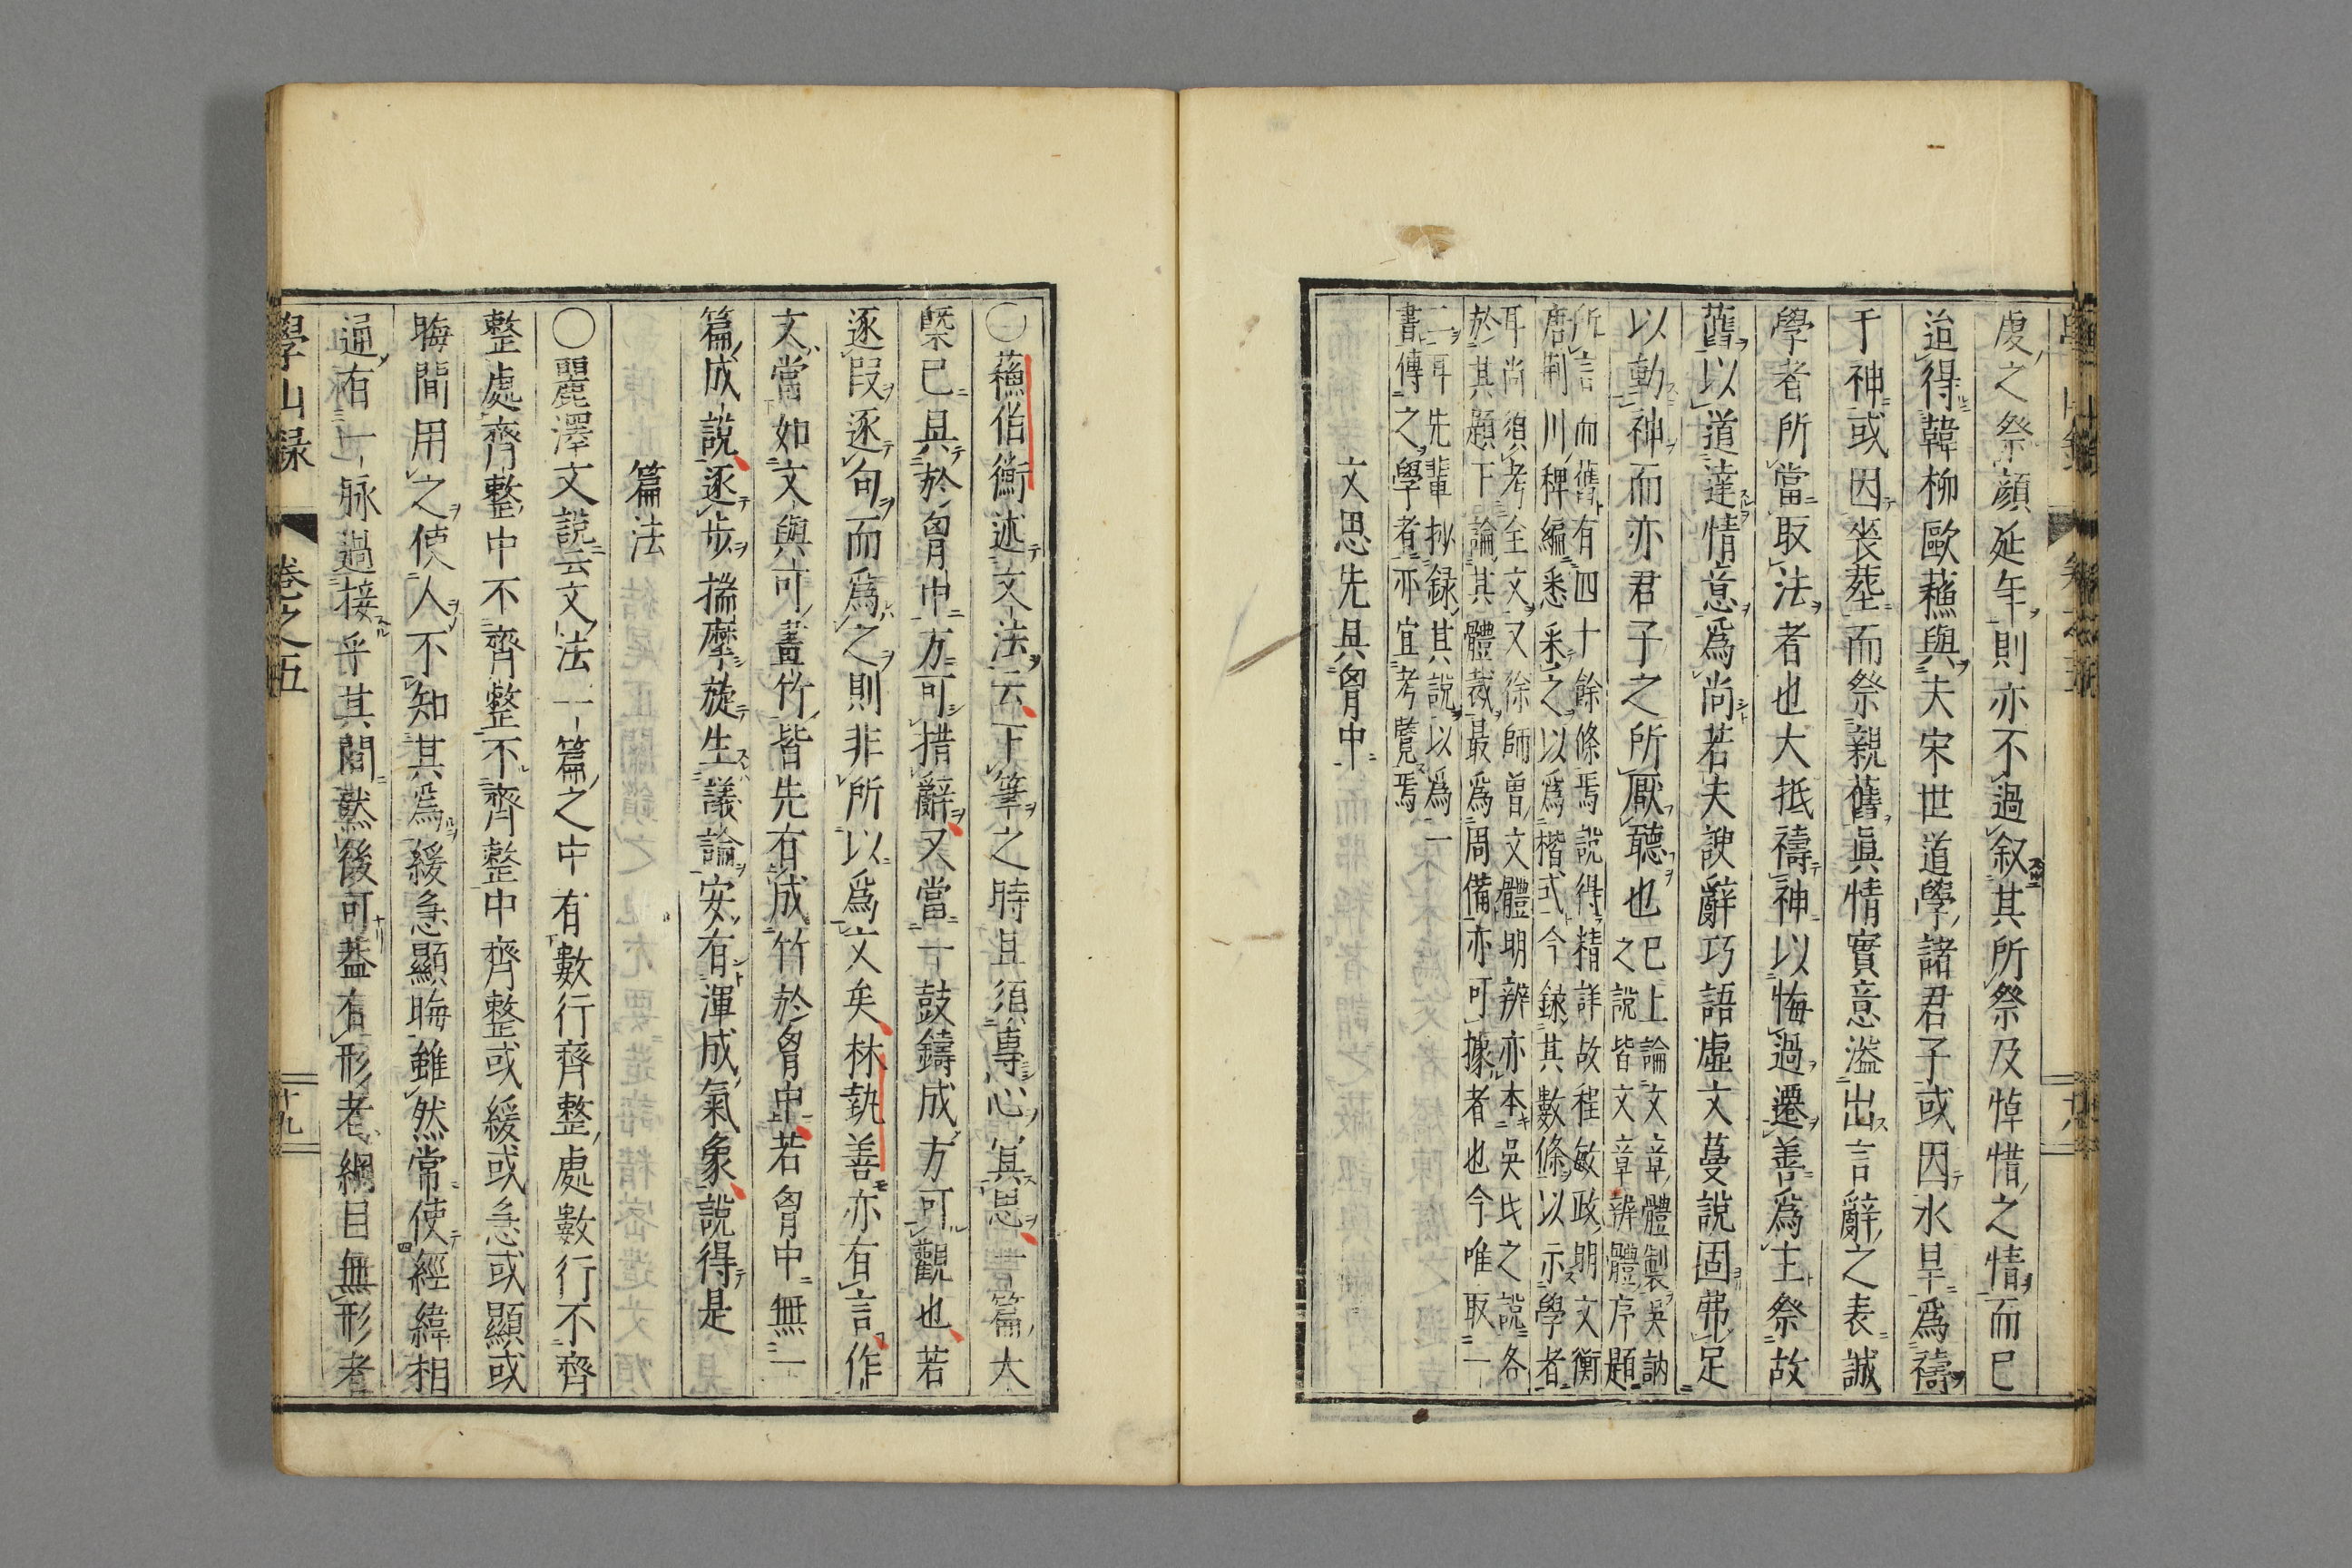 虔之祭顏延年則亦不過叙其所祭及悼惜之情而已
迨得韓柳歐蘓與夫宋世道學諸君子或因水旱爲禱
于神或因喪葬而祭親舊眞情實意溢出言辭之表誠
學者所當取法者也大抵禱神以悔過遷善爲主祭故
舊以道達情意爲尚若夫諛辭巧語虛文蔓說固弗足
以動神而亦君子之所厭聽也
已上論文章體製吳訥
之說皆文章辨體序題
所言而舊有四十餘條焉說得精詳故程敏政明文衡
唐荆川稗編悉采之以爲楷式今錄其數條以示學者
耳尚須考全文又徐師曽文體明辨亦本吳氏之說各
於其題下論其體裁最爲周備亦可據者也今唯取一
二耳先輩抄録其說以爲一
書傳之學者亦宜考覽焉
文思先具胷中
〇蘓伯衡述文法云下筆之時且須專心寘思一篇大
槩已具於胷中方可措辭又當一鼓鑄成方可觀也若
逐段逐句而爲之則非所以爲文矣林執善亦有言作
文當如文與可畫竹皆先有成竹於胷中若胷中無一
篇成說逐步揣摩旋生議論安有渾成氣象說得是
篇法
〇麗澤文說云文法一篇之中有數行齊整處數行不齊
整處齊整中不齊整不齊整中齊整或緩或急或顯或
晦間用之使人不知其爲緩急顯晦雖然常使經緯相
通有一脉過接乎其間然後可蓋有形者綱目無形者
學山録
卷之五
十九